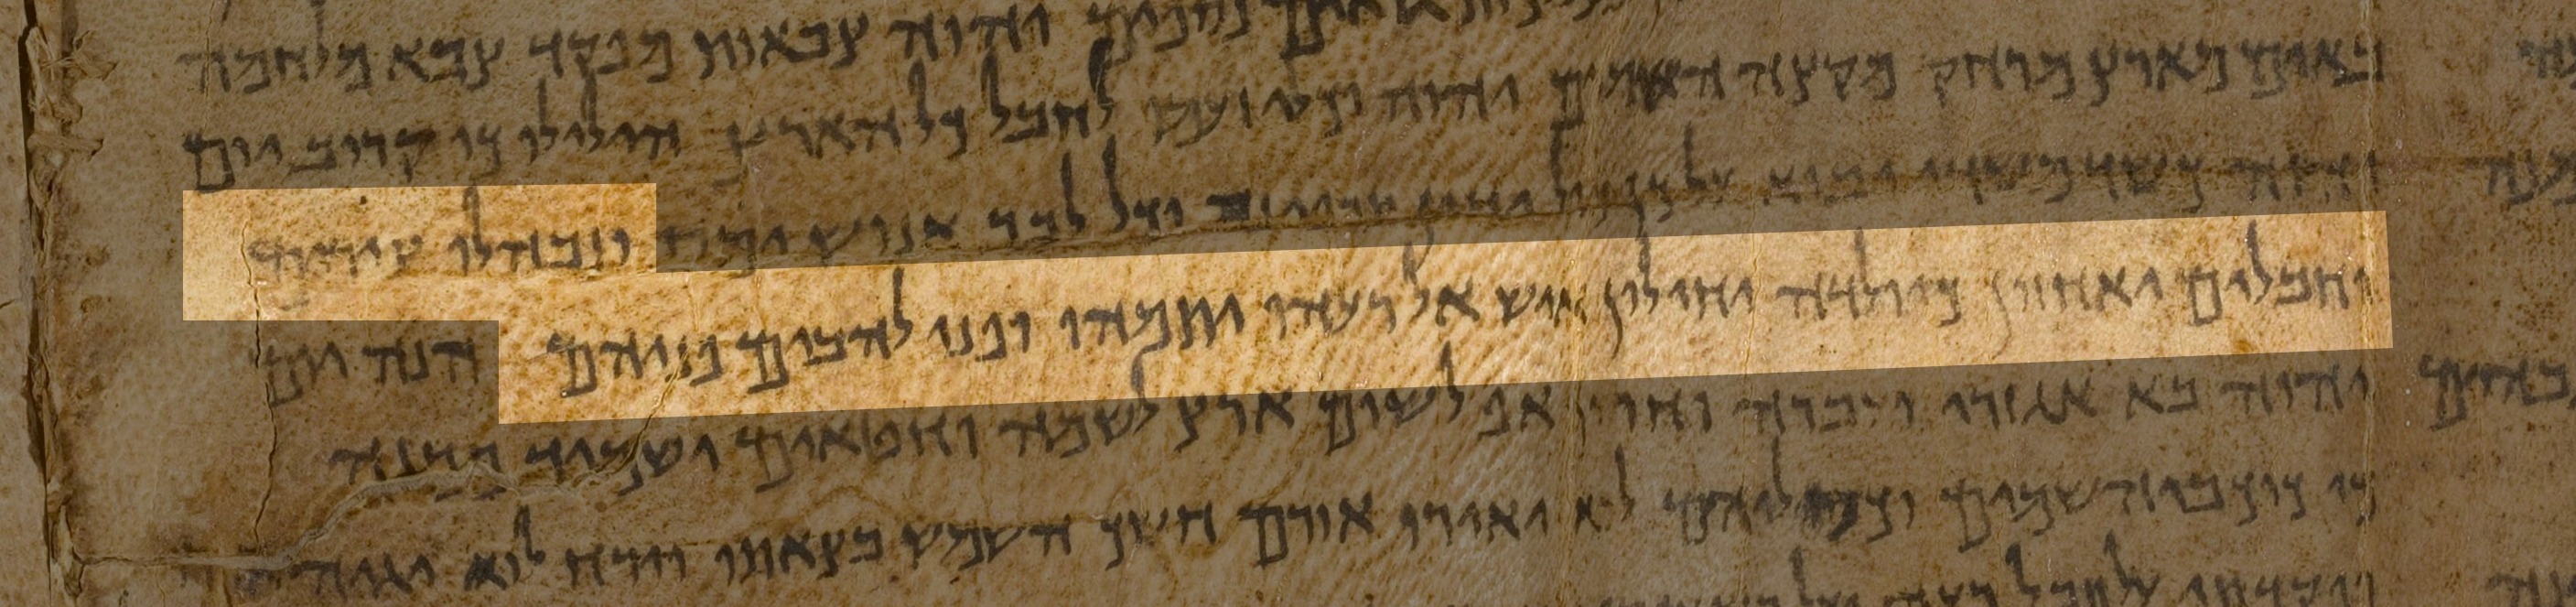 נאספים יהוה צבאות מפקד צבא מלחמה
באים מארץ מרחק מקצה השמים יהוה וכלי זעמו לחבל כל הארץ הילילו כי קרוב יום
יהוה כשוד משדי יבוא על כן כול ידים תרפינה וכל לבב אנוש ימס ונבהלו צירים
וחבלים יאחזון כיולדה יחילון איש אל רעהו יתמהו ופני להבים פניהם הנה יום
יהוה בא אגזרי ועברה וחרון אף לשום ארץ לשמה וחטאים ישמיד ממנה
כי כוכבי השמים וכסיליהם לא יאירו אורם חשך השמש בצאתו וירח לוא יגיה